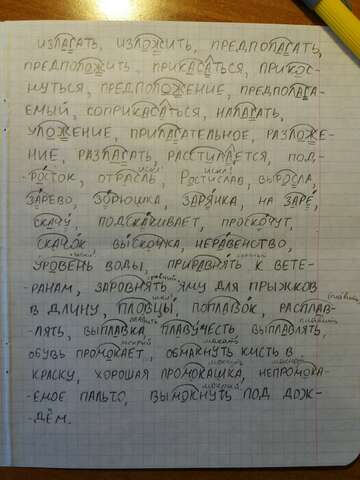 ИЗЛАГАТЬ, ИЗЛОЖИТЬ, ПРЕДПОЛАГАТЬ,
ПРЕДПОЛОЖИТЬ, ПРИКАСАТЬСЯ, ПРИКОС-
НУТЬСЯ, ПРЕДПОЛОЖЕНИЕ, ПРЕДПОЛАГА-
ЕМЫЙ, СОПРИКАСАТЬСЯ, НАЛАГАТЬ,
УЛОЖЕНИЕ, ПРИЛАГАТЕЛЬНОЕ, РАЗЛОЖЕ-
НИЕ, РАЗЛАГАТЬ, РАССТИЛАЕТСЯ, ПОД-
искл! искл!
РОСТОК, ОТРАСЛЬ, РОСТИСЛАВ, ВЫРОСЛА,
ЗАРЕВО, ЗОРЮШКА, ЗАРЯНКА, НА ЗАРЕ,
СКАЧУ, ПОДСКАКИВАЕТ, ПРОСКОЧУТ,
СКАЧОК ВЫСКОЧКА, НЕРАВЕНСТВО,
УРОВЕНЬ ВОДЫ, ПРИРАВНЯТЬ К ВЕТЕ-
РАНАМ, ЗАРОВНЯТЬ ЯМУ ДЛЯ ПРЫЖКОВ
искл!
В ДЛИНУ, ПЛОВЦЫ, ПОПЛАВОК, РАСПЛАВ-
ЛЯТЬ, ВЫПЛАВКА ПЛАВУЧЕСТЬ ВЫПЛАВЛЯТЬ,
мокрый макать
ОБУВЬ ПРОМОКАЕТ, ОБМАКНУТЬ КИСТЬ В
КРАСКУ, ХОРОШАЯ ПРОМОКАШКА, НЕПРОМОКА-
мокрый
ЕМОЕ ПАЛЬТО, ВЫМОКНУТЬ ПОД ДОЖ-
ДЁМ.